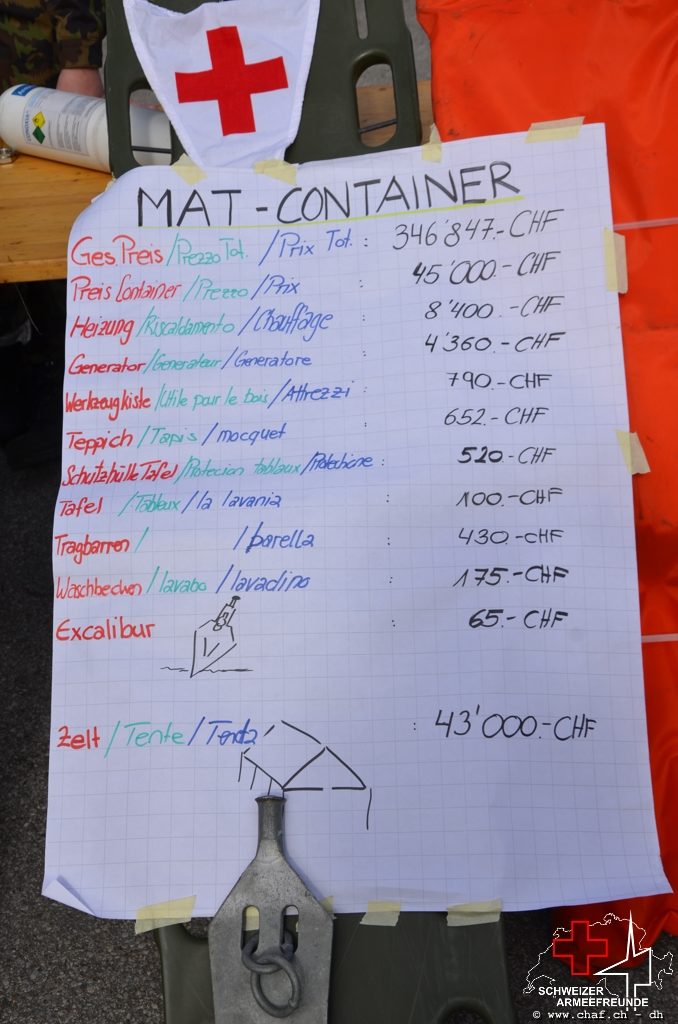 MAT - CONTAINER
Ges. Preis / Prezzo Tot. / Prix Tot. : 346'847.- CHF
Preis Container / Prezzo / Prix : 45'000.- CHF
Heizung / Riscaldamento / Chauffage : 8'400.- CHF
Generator / Generateur / Generatore : 4'360.- CHF
Werkzeugkiste / Utile pour le bois / Attrezzi : 790.- CHF
Teppich / Tapis / mocquet : 652.- CHF
Schutzhülle Tafel / Protecion tablaux / Protetione : 520.- CHF
Tafel / Tableux / la lavania : 100.- CHF
Tragbarren / / barella : 430.- CHF
Waschbecken / lavabo / lavadino : 175.- CHF
Excalibur : 65.- CHF
Zelt / Tente / Tenda : 43'000.- CHF
SCHWEIZER
ARMEEFREUNDE
© www.chaf.ch - dh